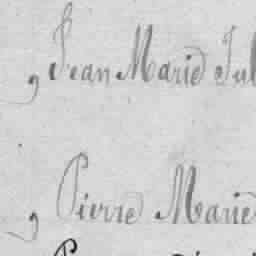 9 Jean Marie Jul
9 Pierre Marie